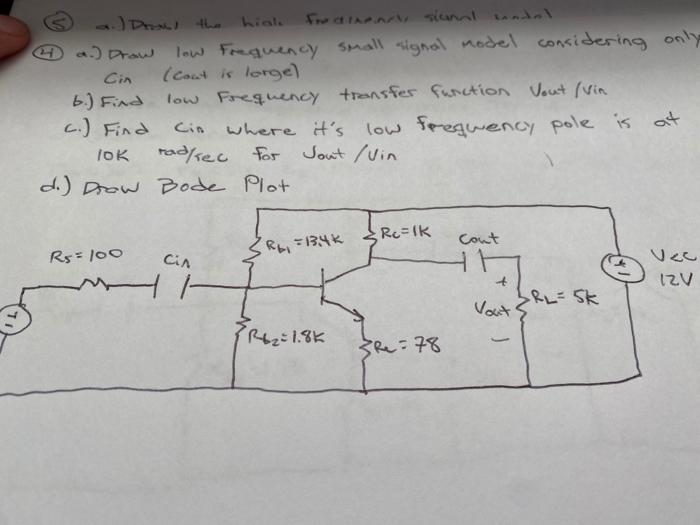 ⑤ a.) Draw the high
④ a.) Draw low frequency small signal model considering only
Cin (Cout is large)
b.) Find low Frequency transfer function Vout/Vin
c.) Find Cin where it's low freqwency pole is at
10K rad/sec for Vout/Vin
d.) Draw Bode Plot
Rs=100
Cin
Rb1=13.4K
Rc=1K
Cout
Vcc
12V
+
Vout
-
RL=5K
Rb2=1.8K
Re=78